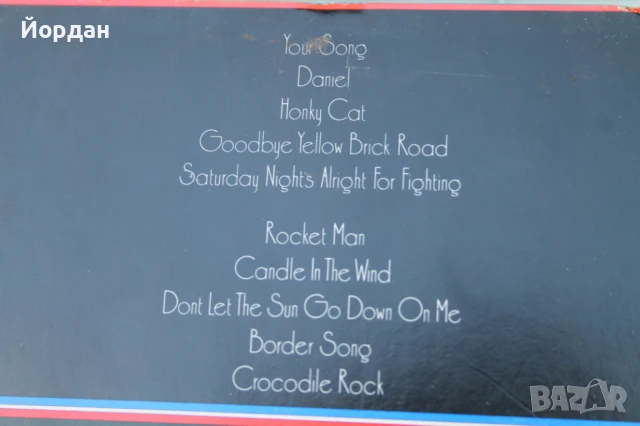 Йордан
Your Song
Daniel
Honky Cat
Goodbye Yellow Brick Road
Saturday Night's Alright For Fighting
Rocket Man
Candle In The Wind
Dont Let The Sun Go Down On Me
Border Song
Crocodile Rock
BAZAR